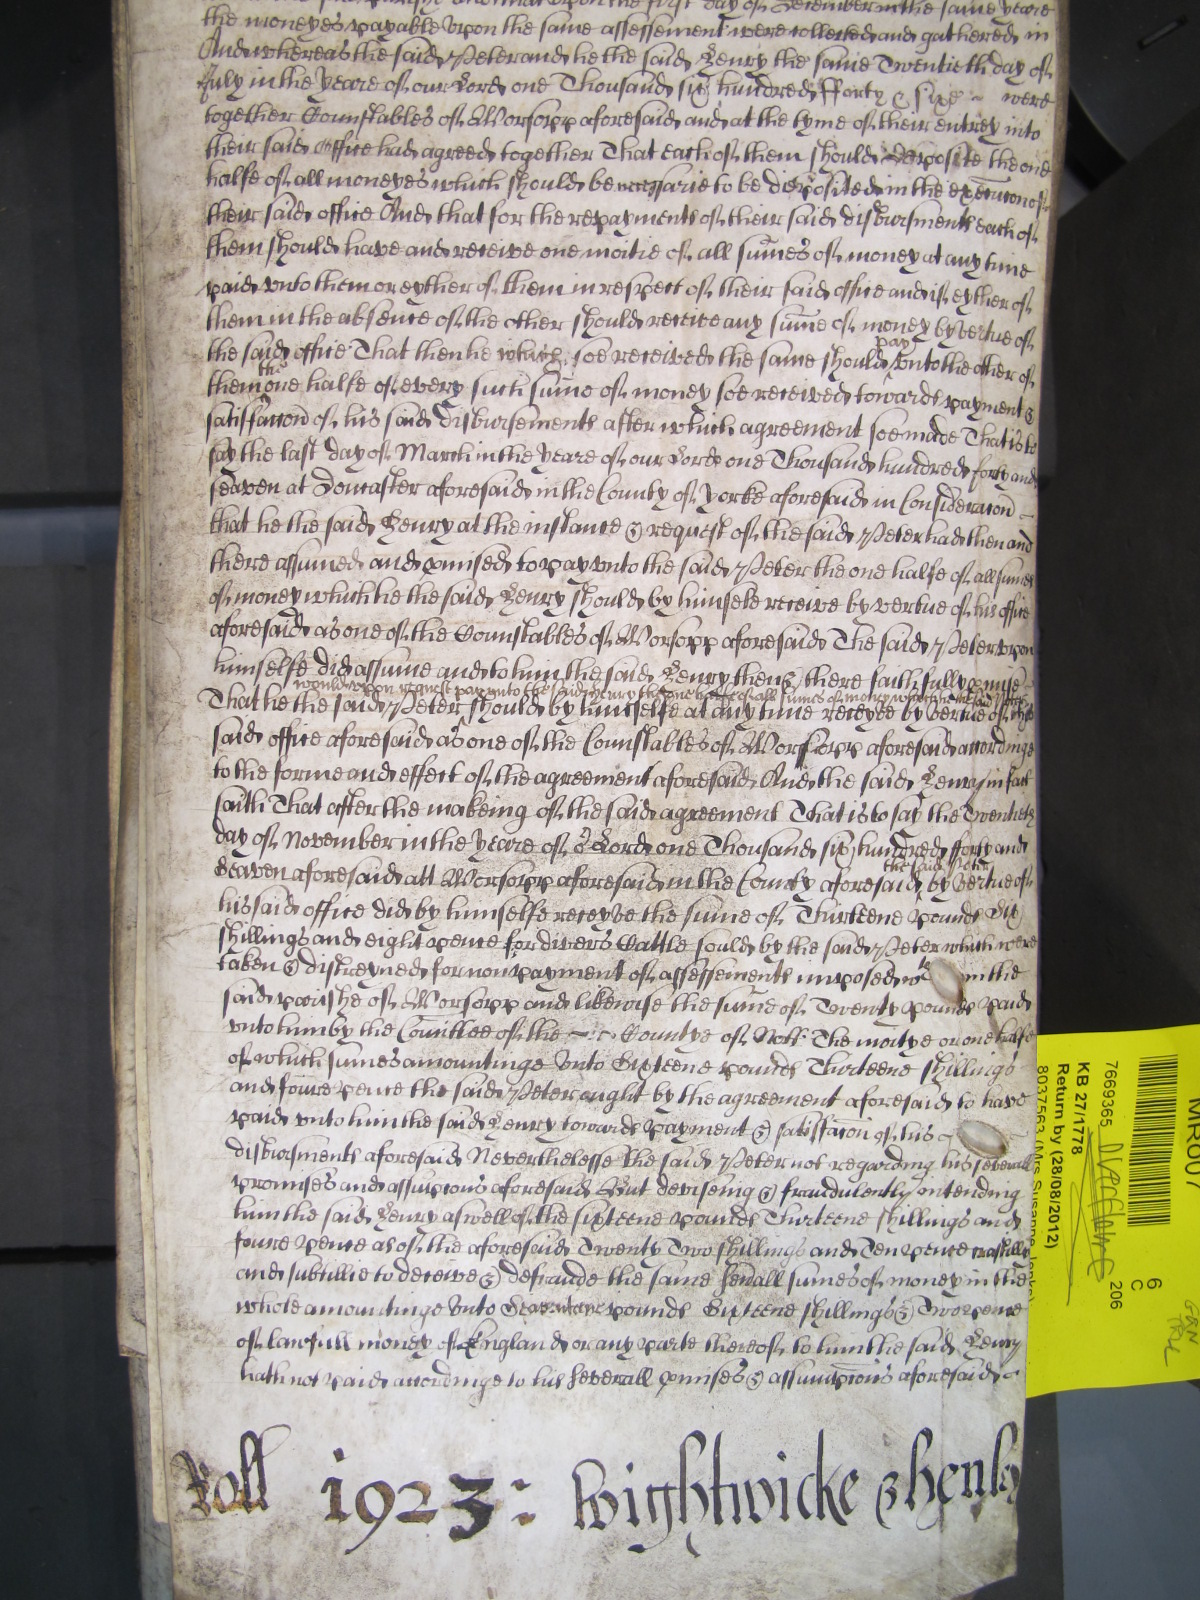 the moneyes payable upon the same assessement were collected and gathered in
And whereas the said Peter and he the said Henry the same Twentieth day of
July in the yeare of our Lord one Thousand six hundred fforty & sixe were
together Counstables of Worsopp aforesaid and at the tyme of their entrey into
their said office had agreed together That each of them should deposite the one
halfe of all moneyes which should be necessarie to be disposited in the execucon of
their said office And that for the repayments of their said disbursments each of
them should have and receive one moitie of all sumes of money at any time
paid unto them or eyther of them in respect of their said office and if eyther of
them in the absence of the other should receive any sume of money by vertue of
the said office That then he which soe received the same should pay unto the other of
them the one halfe of every such sume of money soe received towards payment &
satisfaccon of his said disbursements after which agreement soe made That is to
say the last day of March in the yeare of our Lord one Thousand hundred forty and
seaven at Doncaster aforesaid in the County of Yorke aforesaid in Consideracon
that he the said Henry at the instance & request of the said Peter had then and
there assumed and pmised to pay unto the said Peter the one halfe of all sumes
of money which he the said Henry should by himselfe receive by vertue of his office
aforesaid as one of the Counstables of Worsopp aforesaid The said Peter upon
himselfe did assume and to him the said Henry then & there faithfully pmise
would upon request pay unto the said Henry the one halfe of all sumes of money which he the said Peter
That he the said Peter should by himselfe at any time receyve by vertue of his
said office aforesaid as one of the Counstables of Worsopp aforesaid accordinge
to the forme and effect of the agreement aforesaid And the said Henry in fact
saith That after the makeing of the said agreement That is to say the Twentieth
day of November in the yeare of o Lord one Thousand six hundred forty and
Seaven aforesaid att Worsopp aforesaid in the County aforesaid the said Peter by vertue of
his said office did by himselfe receyve the sume of Thirteene pounds Six
shillings and eight pence for divers Cattle sould by the said Peter which were
taken & distreyned for non payment of assessements imposed in the
said parishe of Worsopp and likewise the sume of Twenty pounds paid
unto him by the Comittee of the Countye of Nott The moitye or one halfe
of which sumes amountinge unto Sixteene pounds Thirteene shillings
and foure pence the said Peter ought by the agreement aforesaid to have
paid unto him the said Henry towards payment & satisfacon of his
disbursments aforesaid Neverthelesse the said Peter not regarding his severall
promises and assumpcons aforesaid But deviseing & fraudulently intending
him the said Henry aswell of the sixteene pounds Thirteene shillings and
foure pence as of the aforesaid Twenty Two shillings and Ten pence craftilly
and subtillie to deceive & defraude the same severall sumes of money in the
whole amountinge unto Seaventeene pounds Sixteene shillings & Two pence
of lawfull money of England or any parte thereof to him the said Henry
hath not paid accordinge to his severall pmises & assumpcions aforesaid
Roll 1923: Wightwicke & Henly
MR6007
7669365
KB 27/1778
Return by (28/08/2012)
6
C
206